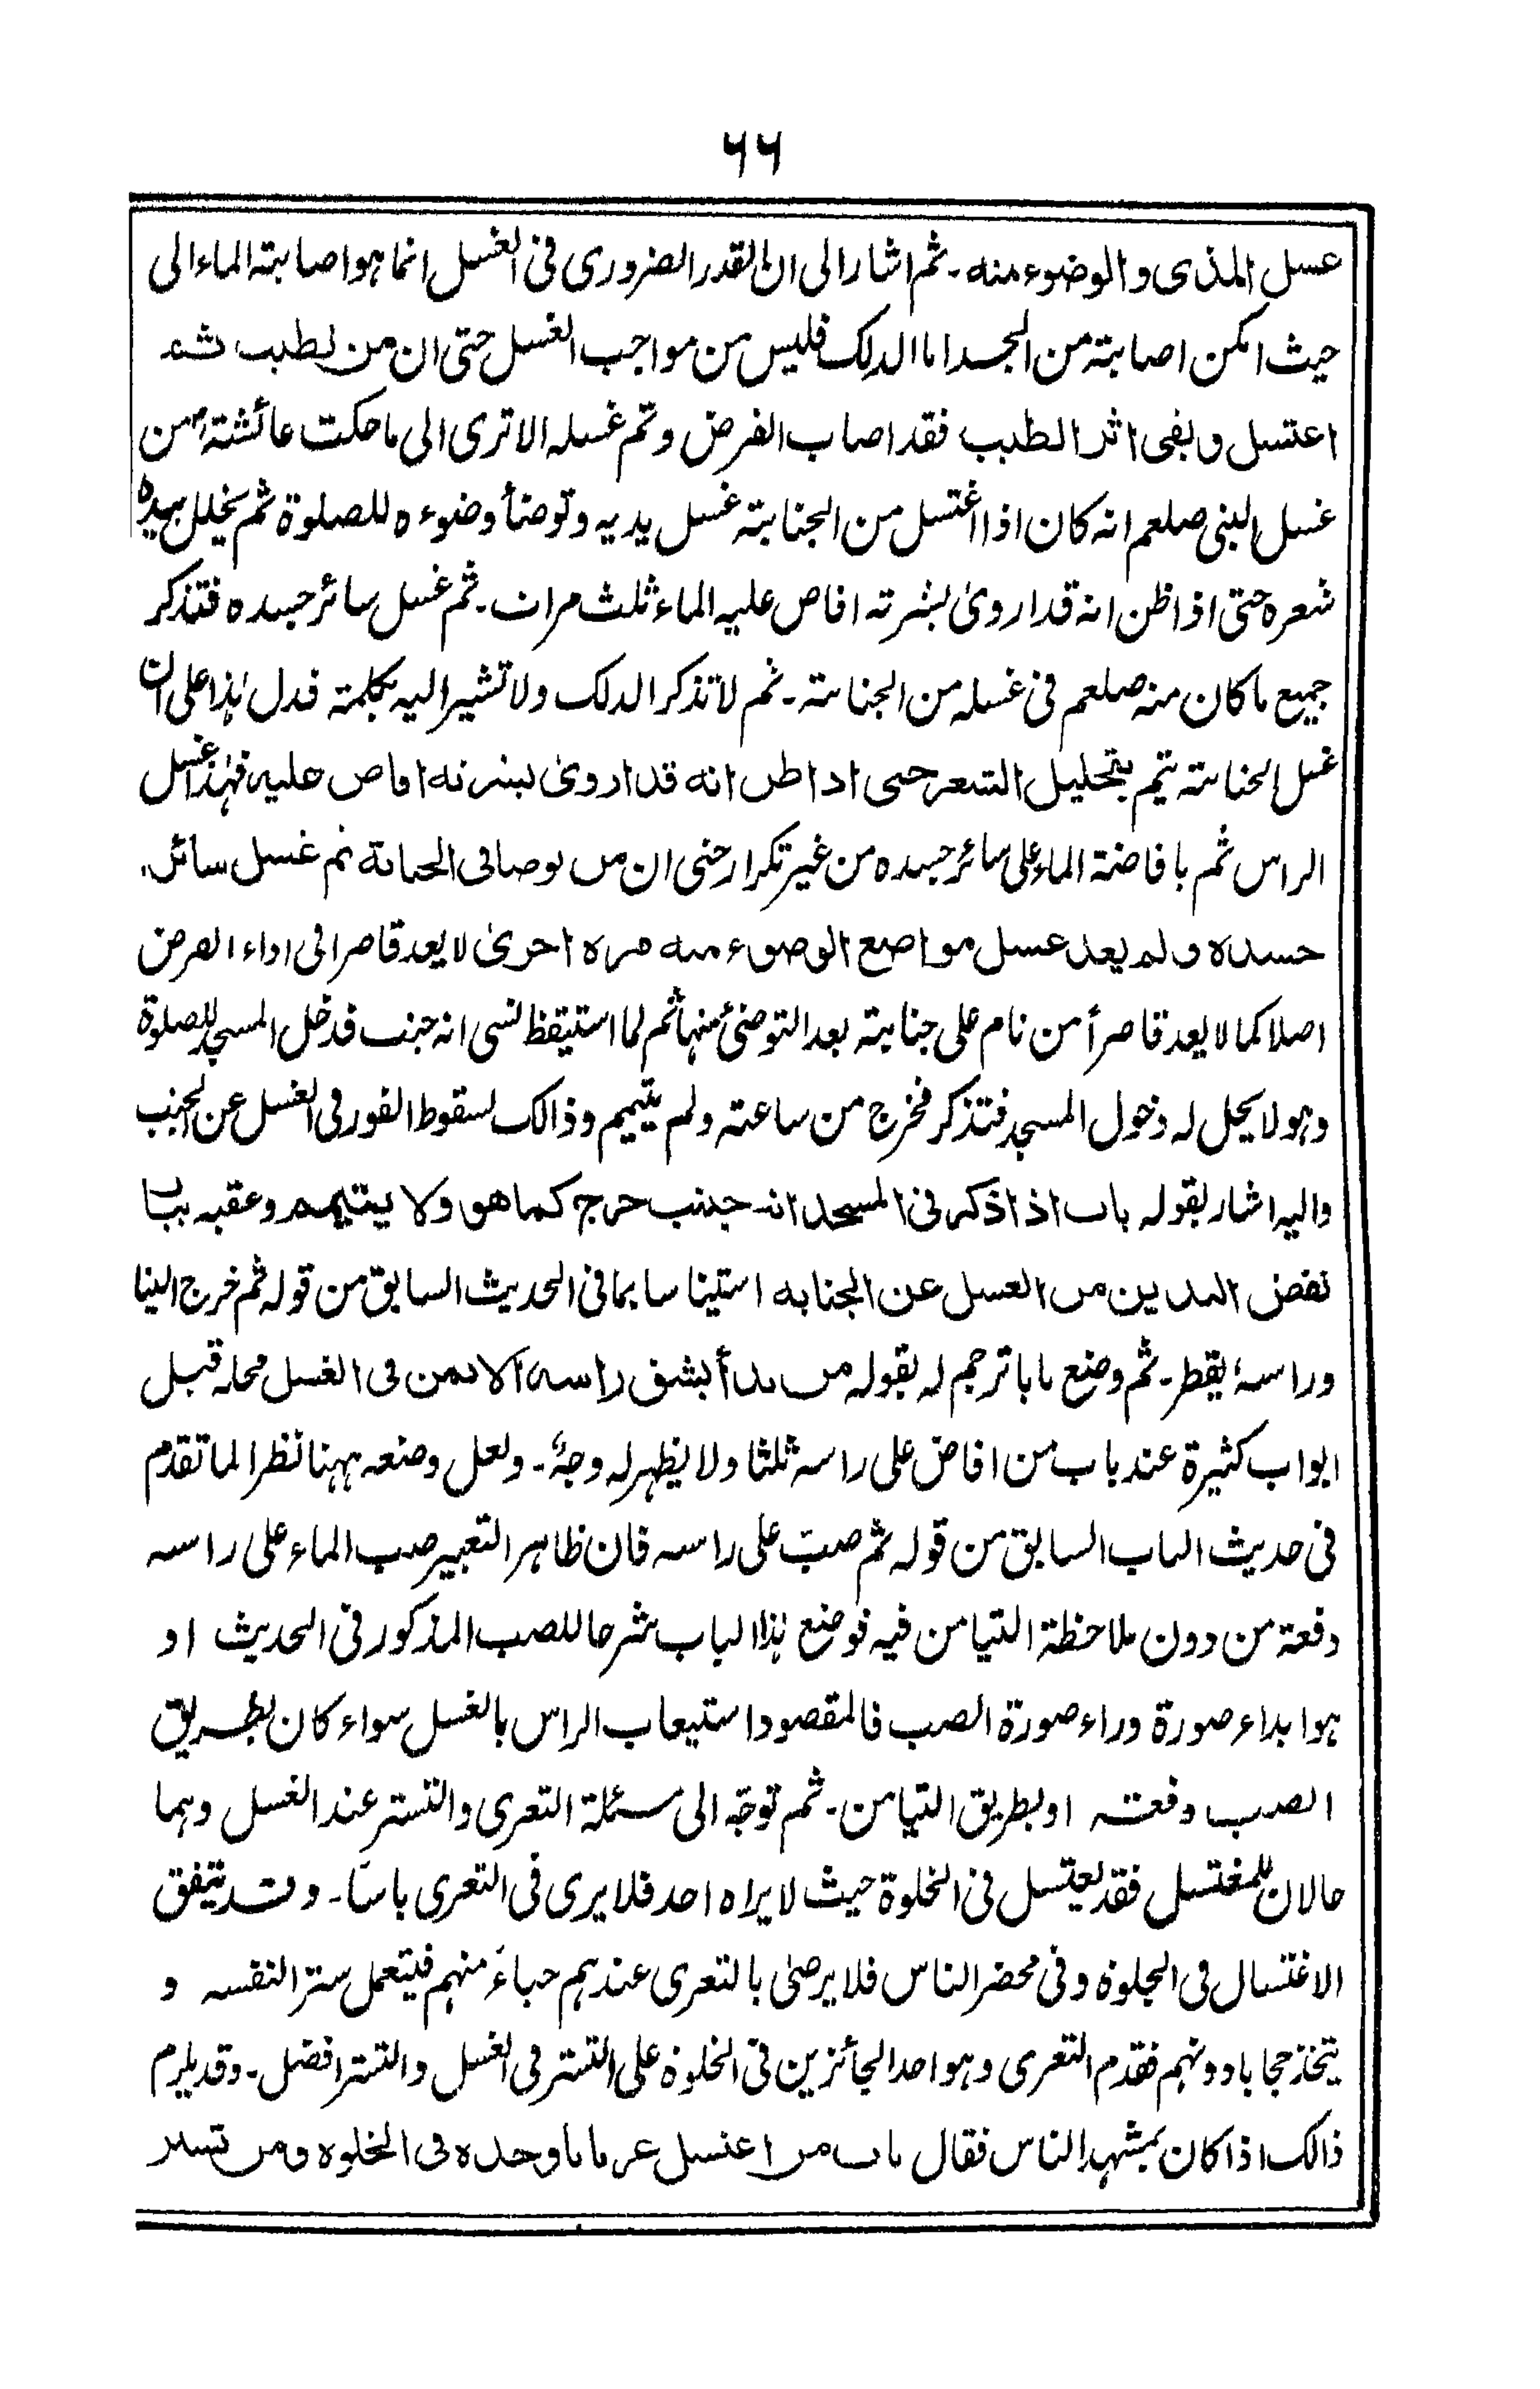 ۶۶
غسل المذى والوضوء منه ـ ثم اشار الى ان القدر الضرورى فى الغسل انما هو اصابته الماء الى
حيث امكن اصابته من الجسد اما الدلك فليس من مواجب الغسل حتى ان من تطيب ثم
اغتسل وبقى اثر الطيب فقد اصاب الفرض وتم غسله الا ترى الى ما حكت عائشة رض من
غسل النبى صلعم انه كان اذا اغتسل من الجنابته غسل يديه وتوضأ وضوءه للصلوة ثم يخلل بيده
شعره حتى اذا ظن انه قد اروىٰ بشرته افاض عليه الماء ثلث مرات ـ ثم غسل سائر جسده فتذكر
جميع ما كان منه صلعم فى غسله من الجنابته ـ ثم لا تذكر الدلك ولا تشير اليه بكلمته فدل هٰذا على ان
غسل الجنابته يتم بتخليل الشعر حتى اذا ظن انه قد اروىٰ بشرته افاض عليه فهٰذا غسل
الراس ثم بافاضة الماء على سائر جسده من غير تكرار حتى ان من توضا فى الجنابة ثم غسل سائر
جسده ولم يعد غسل مواضع الوضوء منه مرة اخرىٰ لا يعد قاصرا فى اداء الفرض
اصلا كما لا يعد قاصرأ من نام على جنابته بعد التوضئ منها ثم لما استيقظ نسى انه جنب فدخل المسجد للصلوة
وهو لا يحل له دخول المسجد فتذكر فخرج من ساعته ولم يتيمم وذالك لسقوط الفور فى الغسل عن الجنب
واليه اشار بقوله باب اذا ذكر فى المسجد انه جنب خرج كما هو ولا يتيمم وعقبه بباب
نفض اليدين من الغسل عن الجنابه استيناسا بما فى الحديث السابق من قوله ثم خرج الينا
وراسهٗ يقطر ـ ثم وضع بابا ترجم له بقوله من بدأ بشق راسه الايمن فى الغسل محله قبل
ابواب كثيرة عند باب من افاض على راسه ثلثا ولا يظهر له وجهٌ ـ ولعل وضعه ههنا نظرا لما تقدم
فى حديث الباب السابق من قوله ثم صبّ على راسه فان ظاهر التعبير صب الماء على راسه
دفعة من دون ملاحظة التيامن فيه فوضع هٰذا الباب شرحا للصب المذكور فى الحديث او
هو ابداء صورة وراء صورة الصب فالمقصود استيعاب الراس بالغسل سواء كان بطريق
الصب دفعته او بطريق التيامن ـ ثم توجّه الى مسئلة التعرى والتستر عند الغسل وهما
حالان للمغتسل فقد يغتسل فى الخلوة حيث لا يراه احد فلا يرى فى التعرى باسًا ـ وقد يتفق
الاغتسال فى الجلوة وفى محضر الناس فلا يرضىٰ بالتعرى عندهم حياءً منهم فيتعمل سترا لنفسه و
يتخذ حجابا دونهم فقدم التعرى وهو احد الجائزين فى الخلوة على التستر فى الغسل والتستر افضل ـ وقد يلزم
ذالك اذا كان بمشهد الناس فقال باب من اغتسل عريانا وحده فى الخلوه ومن تستر